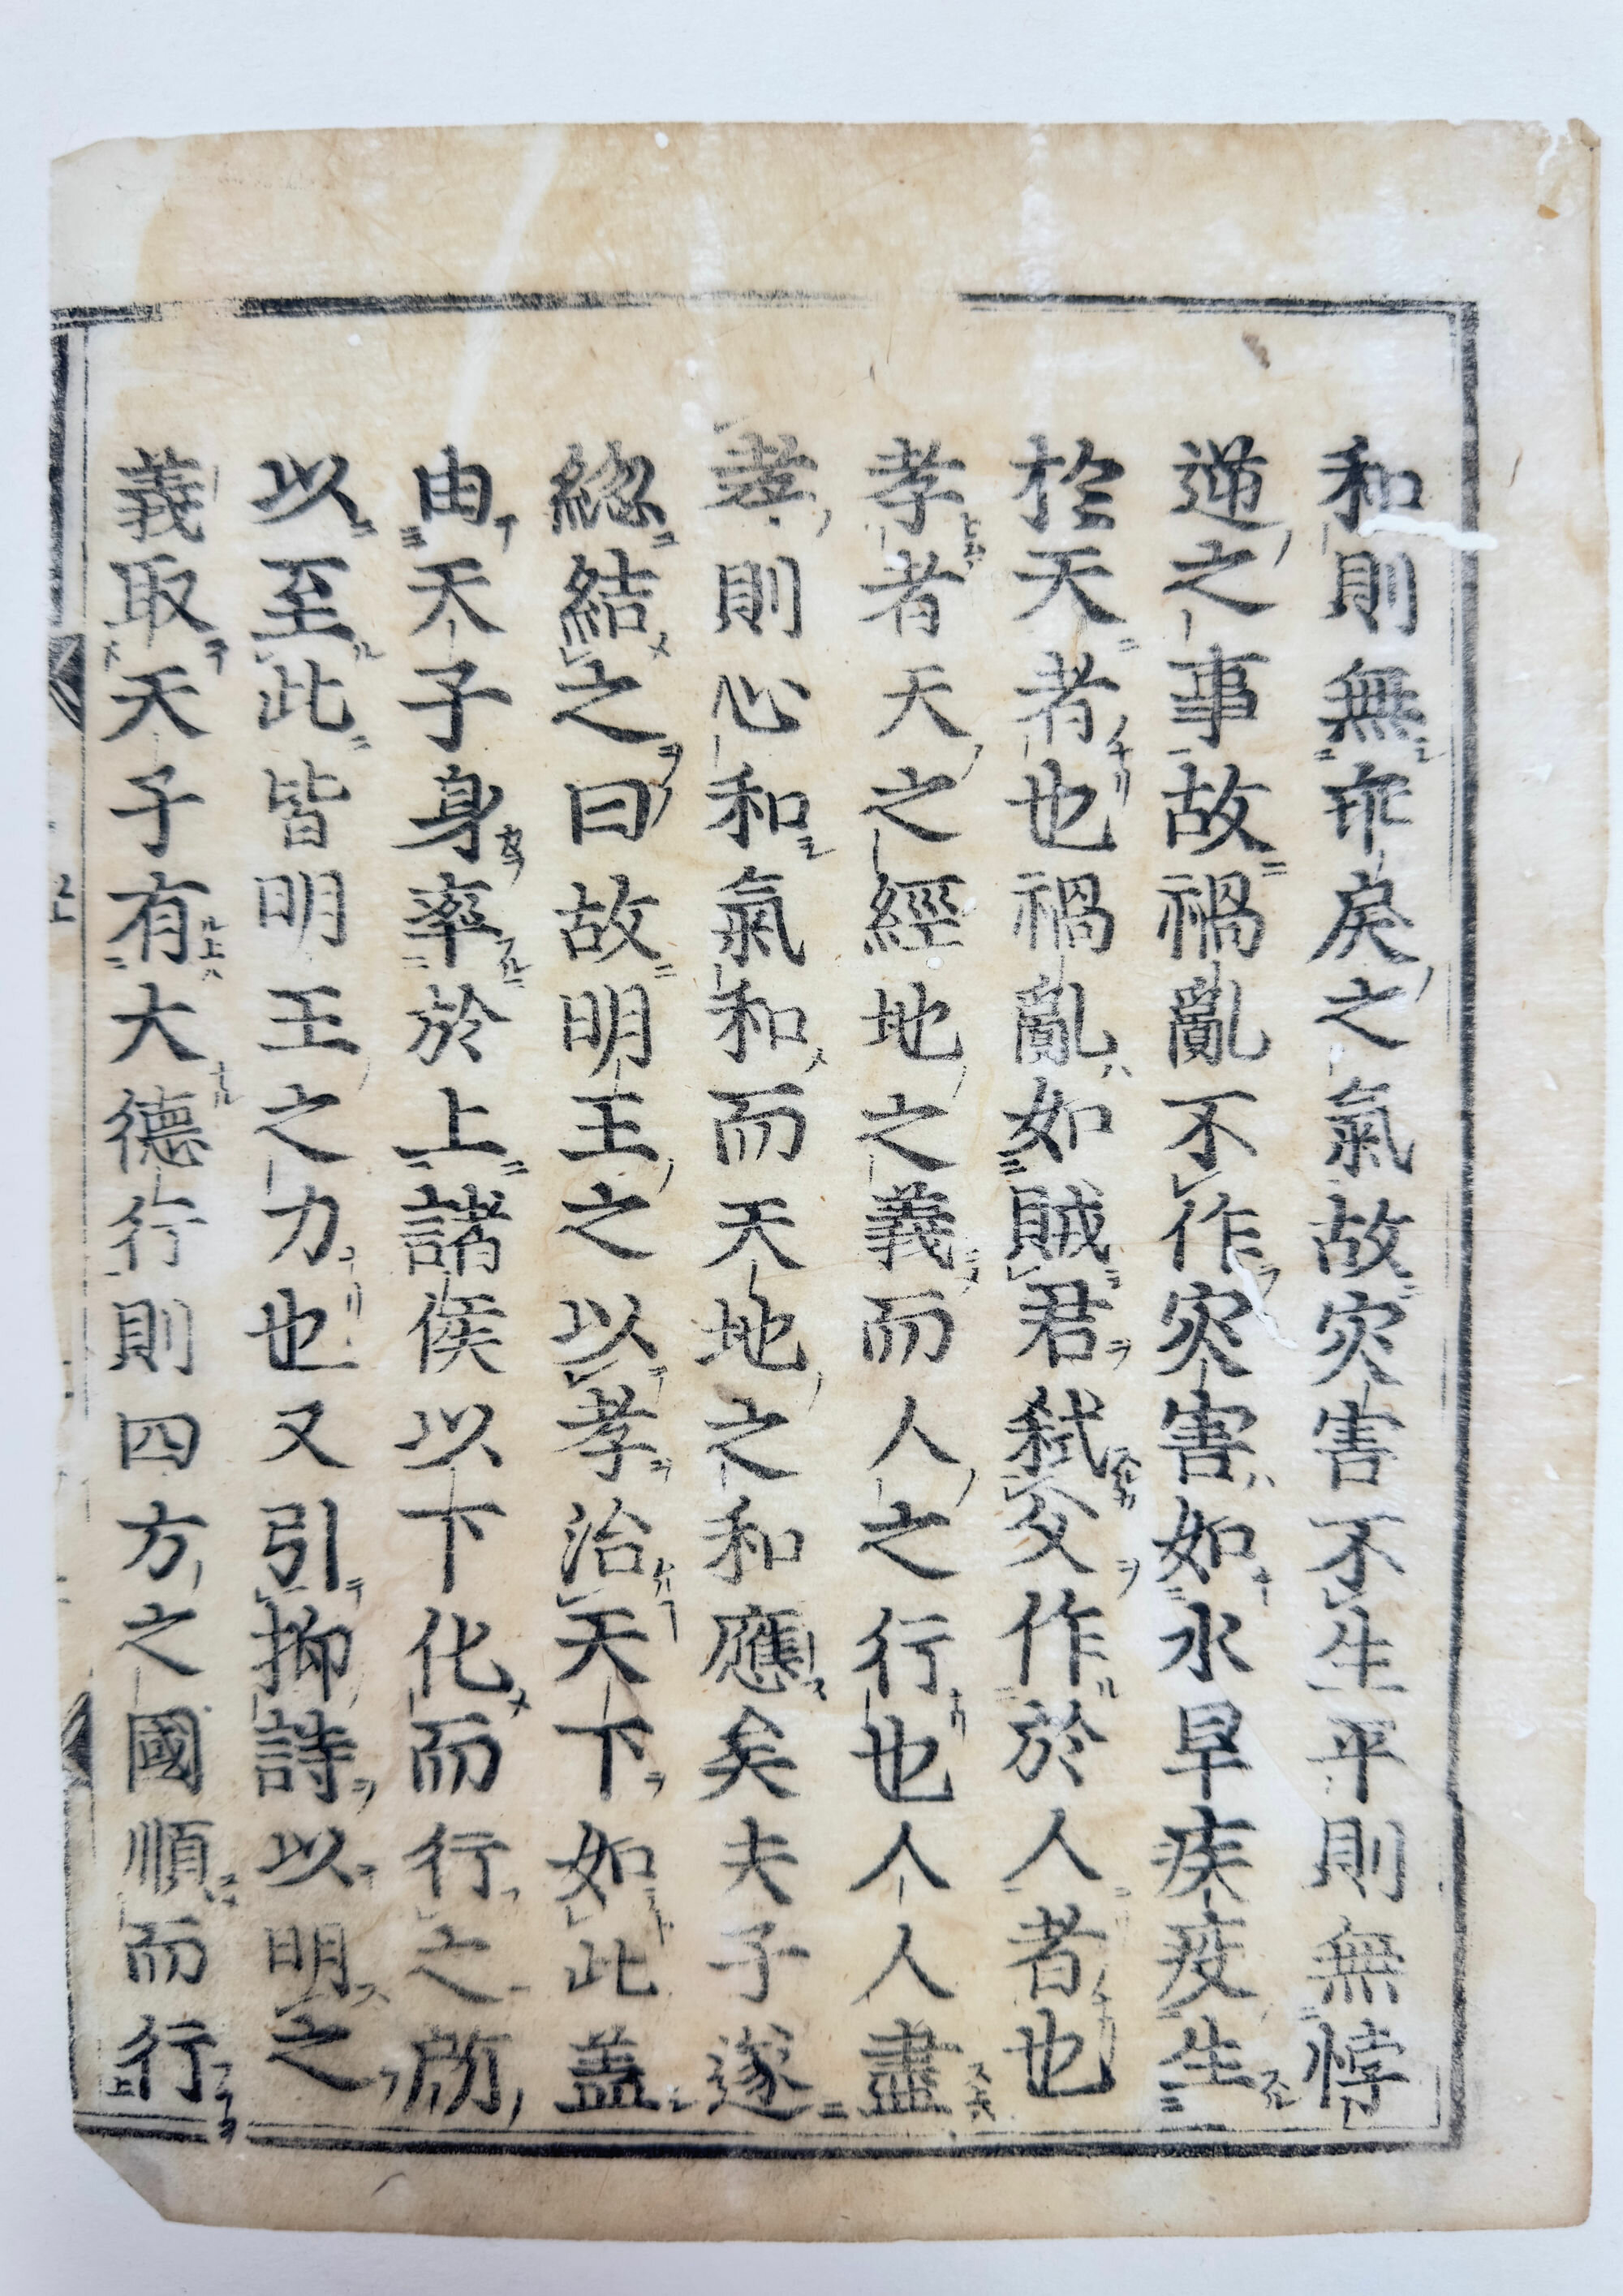 和則無乖戾之氣故灾害不生平則無悖
逆之事故禍亂不作灾害如水旱疾疫生
於天者也禍亂如賊君弑父作於人者也
孝者天之經地之義而人之行也人人盡
孝則心和氣和而天地之和應矣夫子遂
総結之曰故明王之以孝治天下如此盖
由天子身率於上諸侯以下化而行之所
以至此皆明王之力也又引抑詩以明之
義取天子有大德行則四方之國順而行